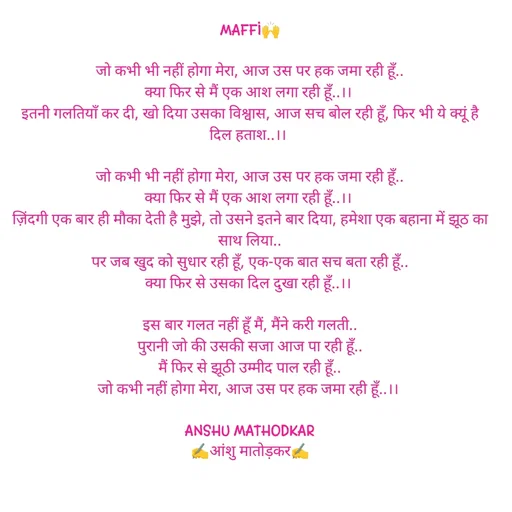 MAFFI🙌
जो कभी भी नहीं होगा मेरा, आज उस पर हक जमा रही हूँ..
क्या फिर से मैं एक आश लगा रही हूँ..।।
इतनी गलतियाँ कर दी, खो दिया उसका विश्वास, आज सच बोल रही हूँ, फिर भी ये क्यूं है
दिल हताश..।।
जो कभी भी नहीं होगा मेरा, आज उस पर हक जमा रही हूँ..
क्या फिर से मैं एक आश लगा रही हूँ..।।
ज़िंदगी एक बार ही मौका देती है मुझे, तो उसने इतने बार दिया, हमेशा एक बहाना में झूठ का
साथ लिया..
पर जब खुद को सुधार रही हूँ, एक-एक बात सच बता रही हूँ..
क्या फिर से उसका दिल दुखा रही हूँ..।।
इस बार गलत नहीं हूँ मैं, मैंने करी गलती..
पुरानी जो की उसकी सजा आज पा रही हूँ..
मैं फिर से झूठी उम्मीद पाल रही हूँ..
जो कभी नहीं होगा मेरा, आज उस पर हक जमा रही हूँ..।।
ANSHU MATHODKAR
✍️आंशु मातोड़कर✍️